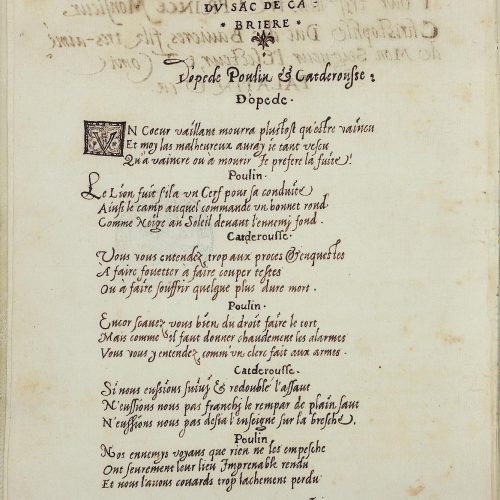 DV SAC DE CA
BRIERE
Dopede Poulin & Catderousse:
Dopede.
VN Coeur vaillant mourra plustost qu'estre vaincu
Et moy las malheureux auray ie tant vescu
Qu'a vaincre ou a mourir Je prefere la fuite!
Poulin.
Le Lion fuit s'il a vn Cerf pour sa conduite
Ainsi le camp auquel commande vn bonnet rond
Comme Neige au Soleil devant l'ennemy fond.
Catderousse.
Vous vous entendez trop aux proces & enquestes
A faire fouetter a faire couper testes
Ou a faire souffrir quelque plus dure mort.
Poulin.
Encor scauez vous bien du droit faire le tort
Mais comme il faut donner chaudement les alarmes
Vous vous y entendez comm' vn clerc fait aux armes.
Catderousse.
Si nous eussions suiuy & redoublé l'assaut
N'eussions nous pas franchi le rempar de plain saut
N'eussions nous pas desia l'enseigne sur la bresche.
Poulin
Nos ennemys voyans que rien ne les empesche
Ont seurement leur lieu Imprenable rendu
Et nous l'auons couards trop lachement perdu